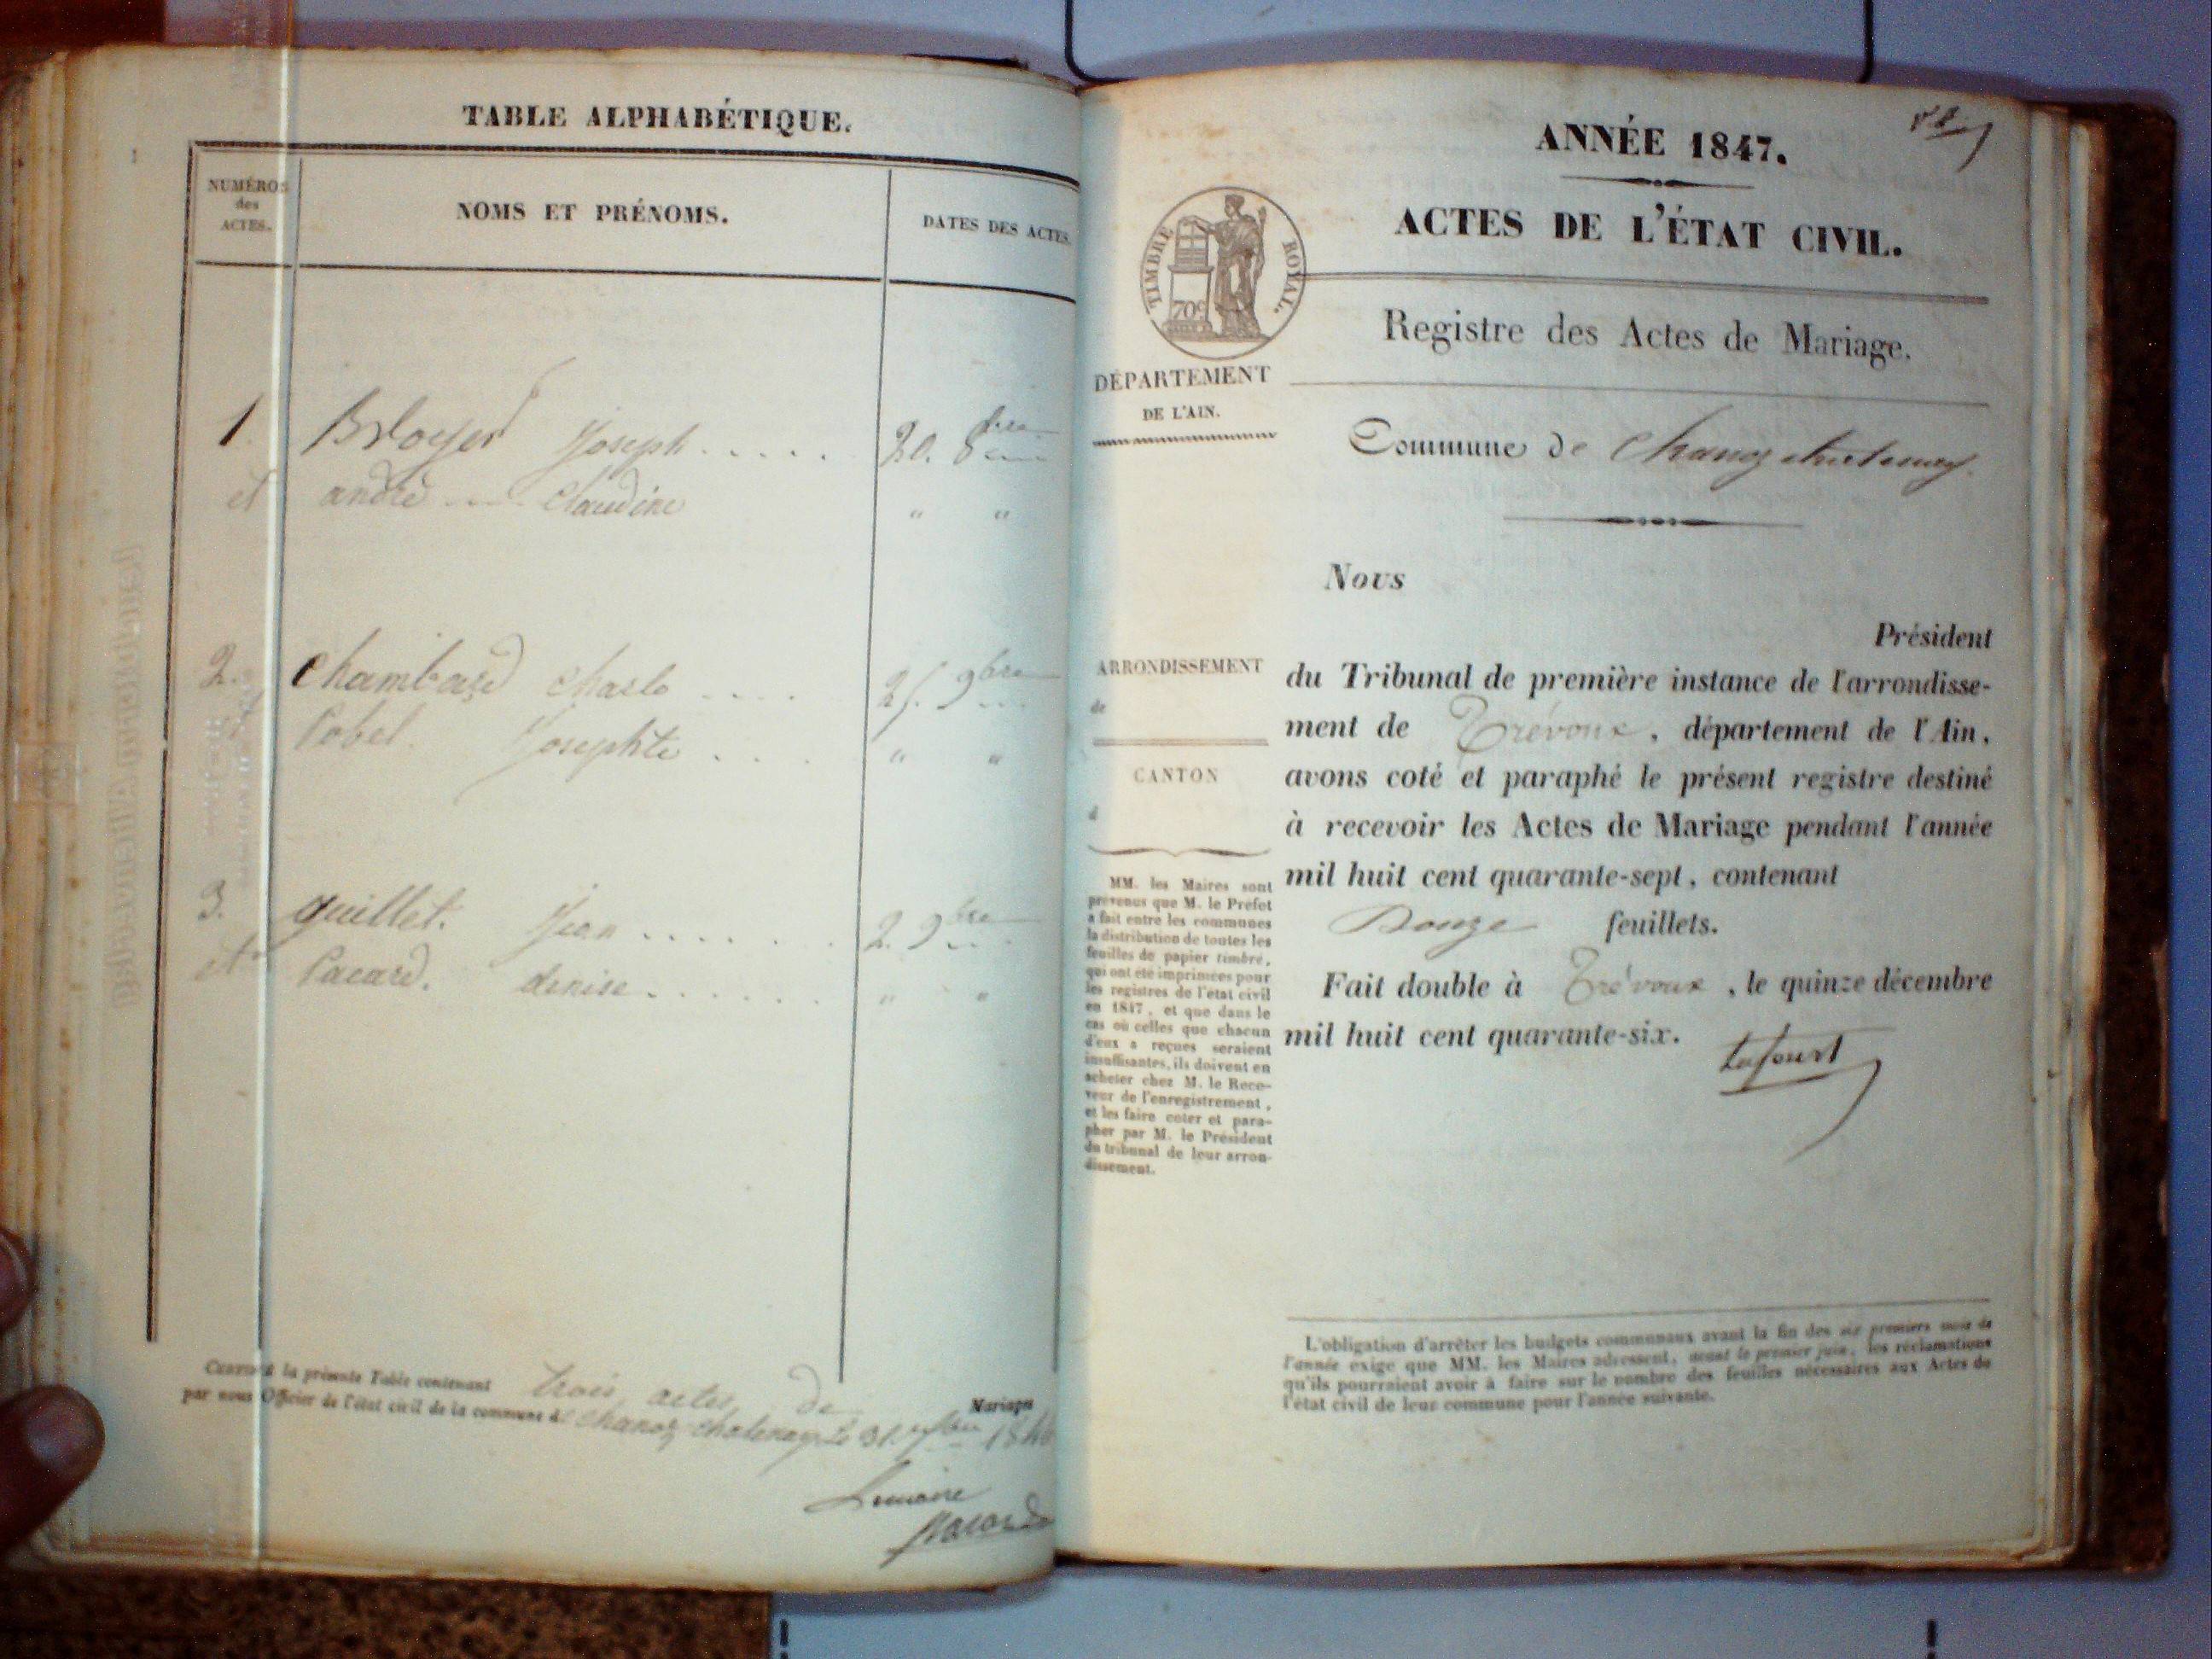 TABLE ALPHABÉTIQUE.
NUMÉROS
des
ACTES.
NOMS ET PRÉNOMS.
DATES DES ACTES.
1. Broyer Joseph ..... 20. 8bre
et andré .... Claudine " "
2. Chambard Charle .... 25. 9bre
Pobel. Josephte .... " "
3. guillet. Jean ....... 2. 9bre
et Pacard. denise ....... " "
CERTIFIÉ la présente Table contenant trois actes de Mariages
par nous Officier de l'état civil de la commune de Chanoz chatenay le 31. 1846
Le maire
ANNÉE 1847.
ACTES DE L'ÉTAT CIVIL.
TIMBRE ROYAL.
70c
Registre des Actes de Mariage.
DÉPARTEMENT
DE L'AIN.
Commune de Chanoz chatenay.
Nous
Président
ARRONDISSEMENT
de
du Tribunal de première instance de l'arrondisse-
ment de Trévoux, département de l'Ain,
CANTON
avons coté et paraphé le présent registre destiné
à recevoir les Actes de Mariage pendant l'année
mil huit cent quarante-sept, contenant
Douze feuillets.
Fait double à Trévoux, le quinze décembre
mil huit cent quarante-six.
MM. les Maires sont
prévenus que M. le Préfet
a fait entre les communes
la distribution de toutes les
feuilles de papier timbré,
qui ont été imprimées pour
les registres de l'état civil
en 1847, et que dans le
cas où celles que chacun
d'eux a reçues seraient
insuffisantes, ils doivent en
acheter chez M. le Rece-
veur de l'enregistrement,
et les faire coter et para-
pher par M. le Président
du tribunal de leur arron-
dissement.
L'obligation d'arrêter les budgets communaux avant la fin des six premiers mois de
l'année exige que MM. les Maires adressent, avant le premier juin, les réclamations
qu'ils pourraient avoir à faire sur le nombre des feuilles nécessaires aux Actes de
l'état civil de leur commune pour l'année suivante.